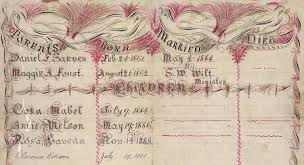 Parents Born Married Died
Daniel F. Sarver Feb 24 1861. May 4 1884
Maggie A. Faust. August 2 1862 By S. W. Wilt. Minister
Children
Cora Mabel July 9 1884.
Artie Nelson May 19 1886
Rosa Nov 14 1888.
Clarence July